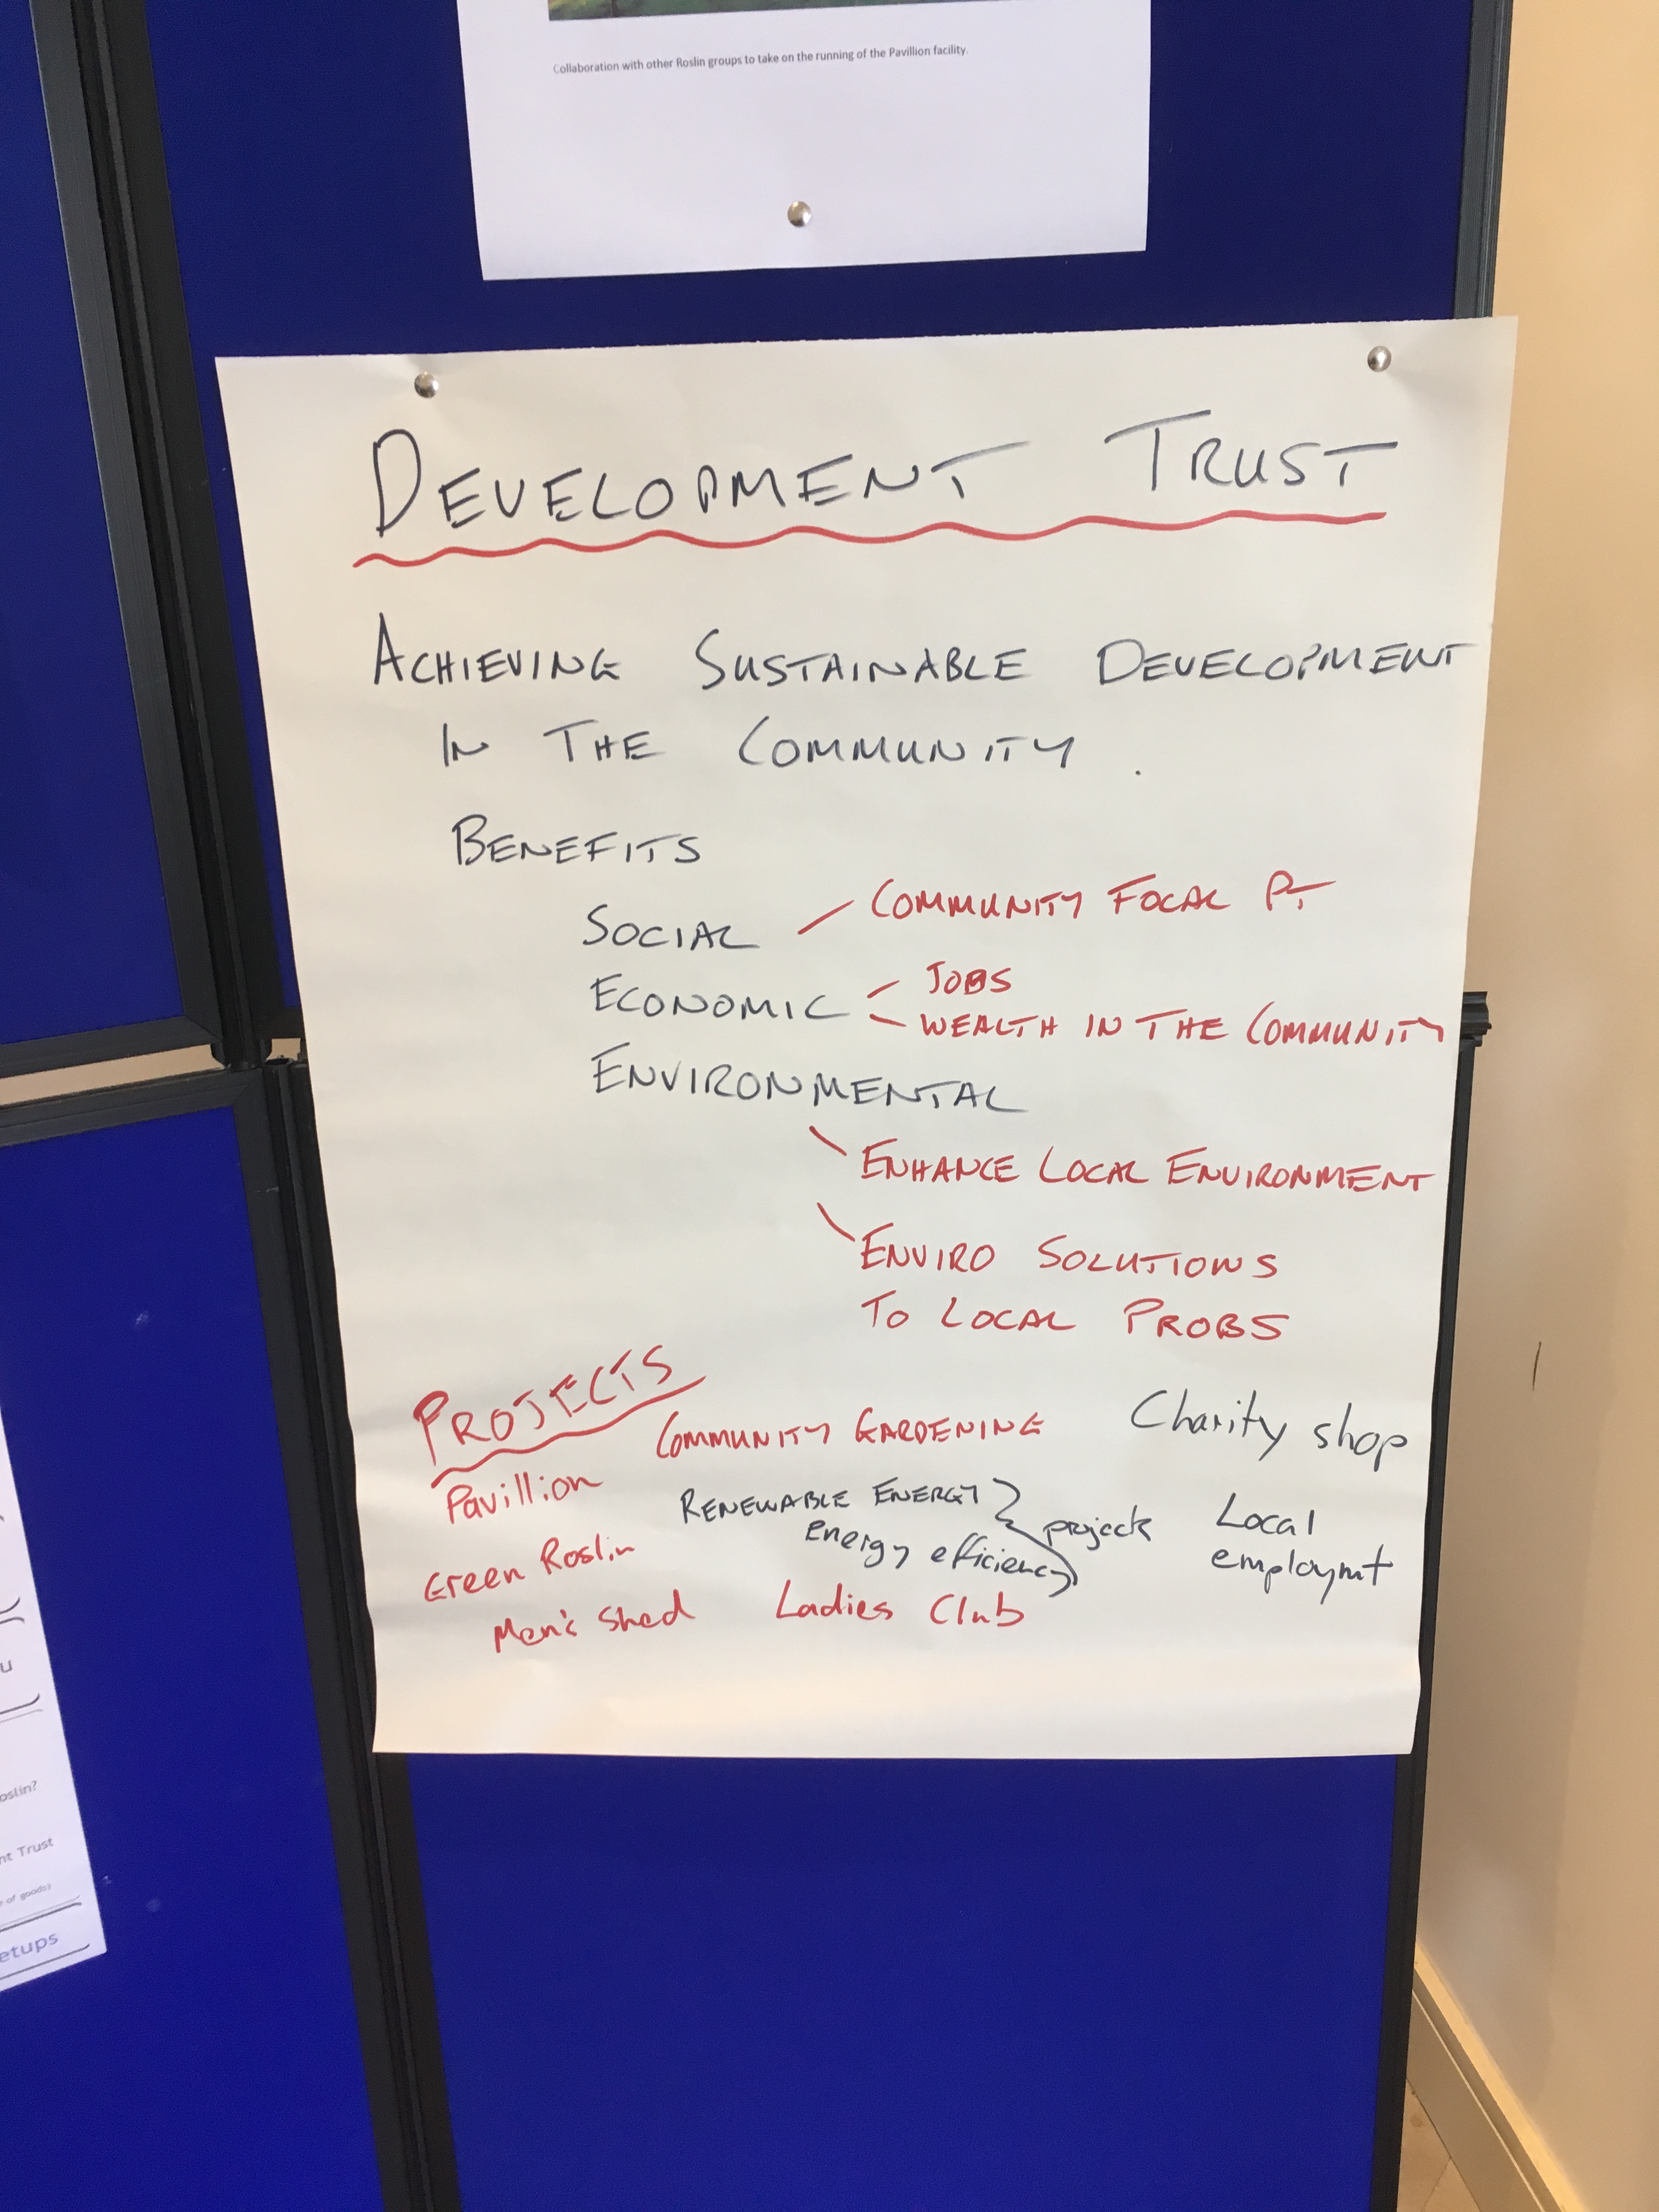 Collaboration with other Roslin groups to take on the running of the Pavillion facility.
DEVELOPMENT TRUST
ACHIEVING SUSTAINABLE DEVELOPMENT
IN THE COMMUNITY.
BENEFITS
SOCIAL COMMUNITY FOCAL PT
ECONOMIC JOBS
WEALTH IN THE COMMUNITY
ENVIRONMENTAL
ENHANCE LOCAL ENVIRONMENT
ENVIRO SOLUTIONS
TO LOCAL PROBS
PROJECTS
COMMUNITY GARDENING
Charity shop
Pavillion
RENEWABLE ENERGY
Energy efficiency
projects
Local
employmt
Green Roslin
Men's Shed
Ladies Club
oslin?
nt Trust
of goods)
etups